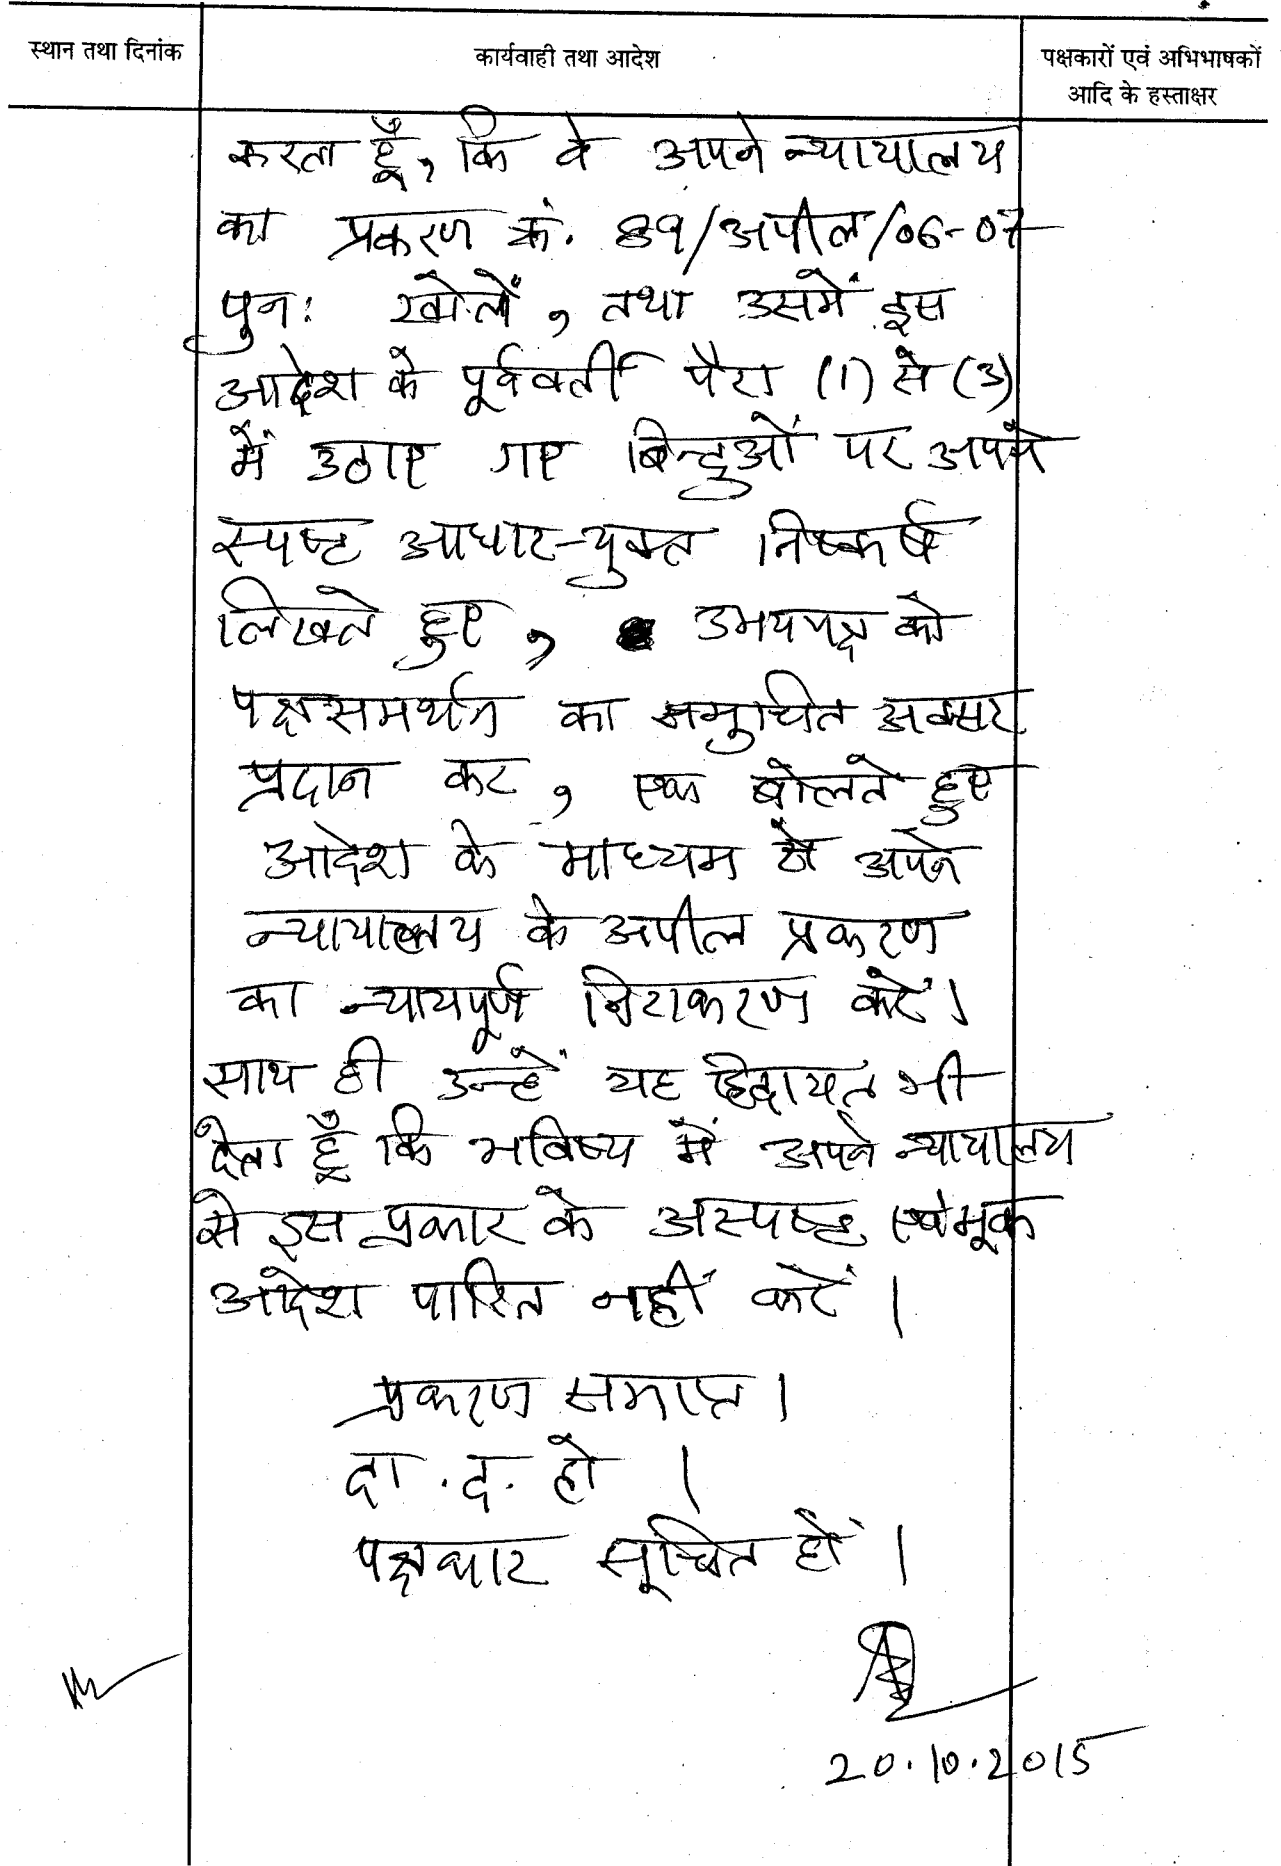 स्थान तथा दिनांक
कार्यवाही तथा आदेश
पक्षकारों एवं अभिभाषकों
आदि के हस्ताक्षर
करता हूँ, कि वे अपने न्यायालय
का प्रकरण क्रं. 89/अपील/06-07
पुनः खोलें, तथा उसमें इस
आदेश के पूर्ववर्ती पैरा (1) से (3)
में उठाए गए बिन्दुओं पर अपने
स्पष्ट आधार-युक्त निष्कर्ष
लिखते हुए, उभयपक्ष को
पक्षसमर्थन का समुचित अवसर
प्रदान कर, एक बोलते हुए
आदेश के माध्यम से अपने
न्यायालय के अपील प्रकरण
का न्यायपूर्ण निराकरण करें।
साथ ही उन्हें यह हिदायत भी
देता हूँ कि भविष्य में अपने न्यायालय
से इस प्रकार के अस्पष्ट एवं मूक
आदेश पारित नहीं करें।
प्रकरण समाप्त।
दा. द. हो।
पक्षकार सूचित हों।
20.10.2015